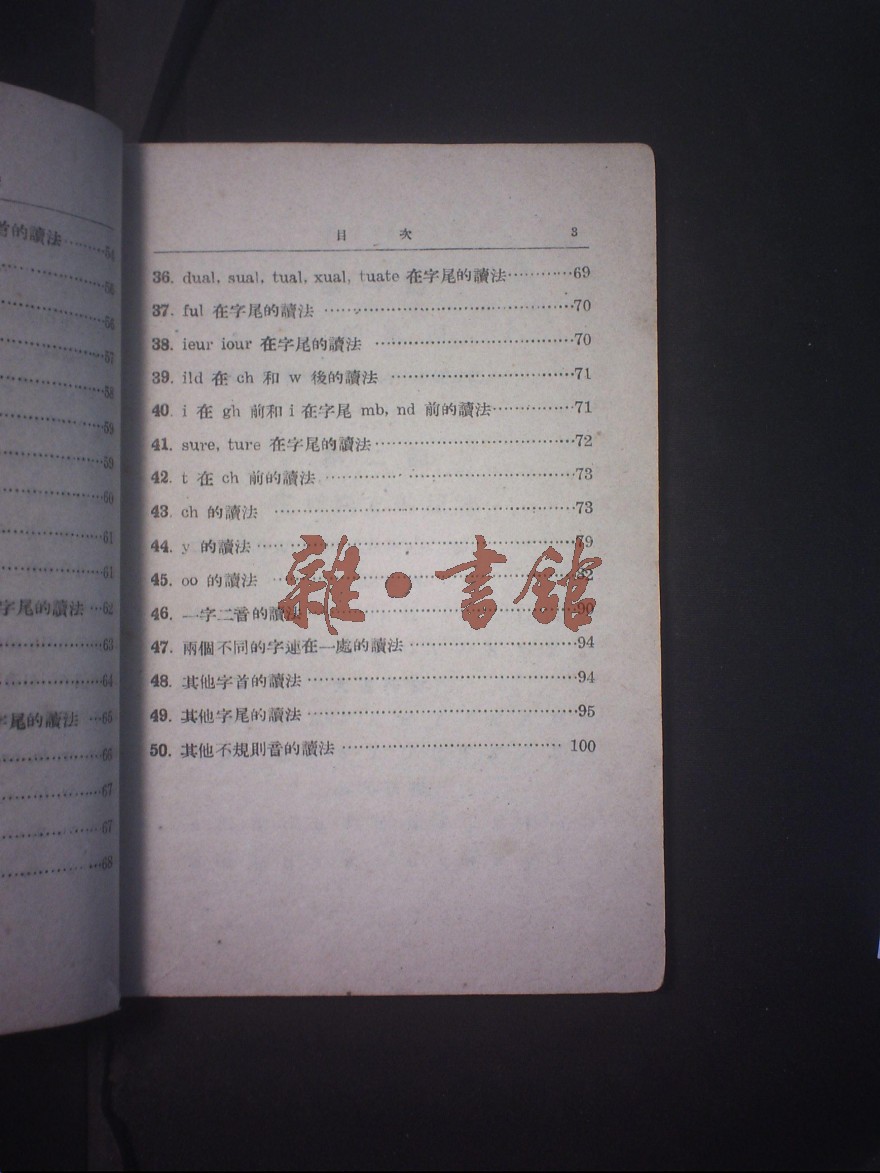 首的讀法………54
56
56
57
58
59
59
60
61
61
字尾的讀法…62
63
64
字尾的讀法…65
66
67
67
68
目 次 3
36. dual, sual, tual, xual, tuate 在字尾的讀法…………69
37. ful 在字尾的讀法…………70
38. ieur iour 在字尾的讀法…………70
39. ild 在 ch 和 w 後的讀法…………71
40. i 在 gh 前和 i 在字尾 mb, nd 前的讀法…………71
41. sure, ture 在字尾的讀法…………72
42. t 在 ch 前的讀法…………73
43. ch 的讀法…………73
44. y 的讀法…………79
45. oo 的讀法…………82
46. 一字二音的讀法…………90
47. 兩個不同的字連在一處的讀法…………94
48. 其他字首的讀法…………94
49. 其他字尾的讀法…………95
50. 其他不規則音的讀法…………100
雜·書館